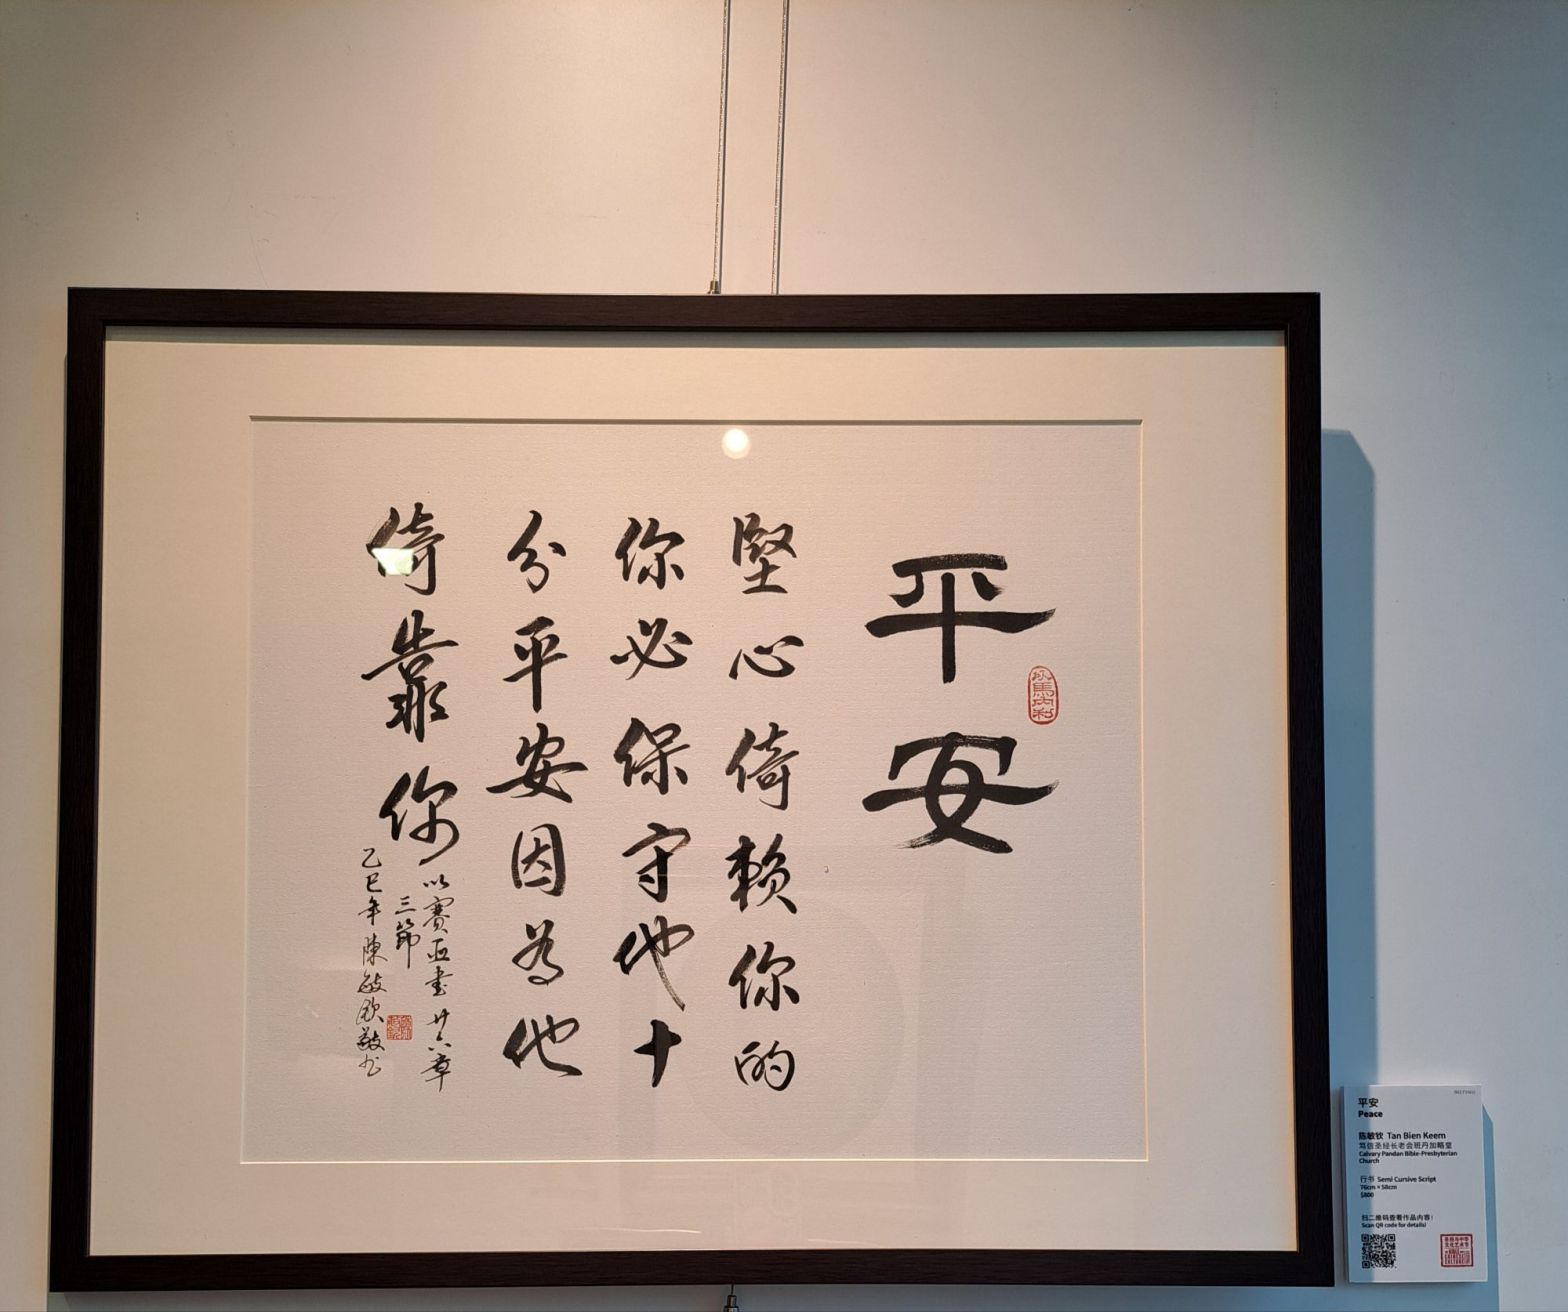 平安
堅心倚賴你的
你必保守他十
分平安因為他
倚靠你
以賽亞書廿六章
三節
乙巳年陳敏欽敬书
以馬內利
平安
Peace
陈敏钦 Tan Bien Keem
笃信圣经长老会班丹加略堂
Calvary Pandan Bible-Presbyterian
Church
行书 Semi Cursive Script
76cm × 58cm
$800
扫二维码查看作品内容！
Scan QR code for details!